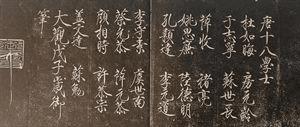 唐十八學士
杜如晦 房元齡
于志寧 蘇世長
薛收 褚亮
姚思廉 陸德明
孔穎達 李元道
李守素 虞世南
蔡允恭 薛元敬
顏相時 許敬宗
蓋文達 蘇勗
大觀戊子歲御
筆